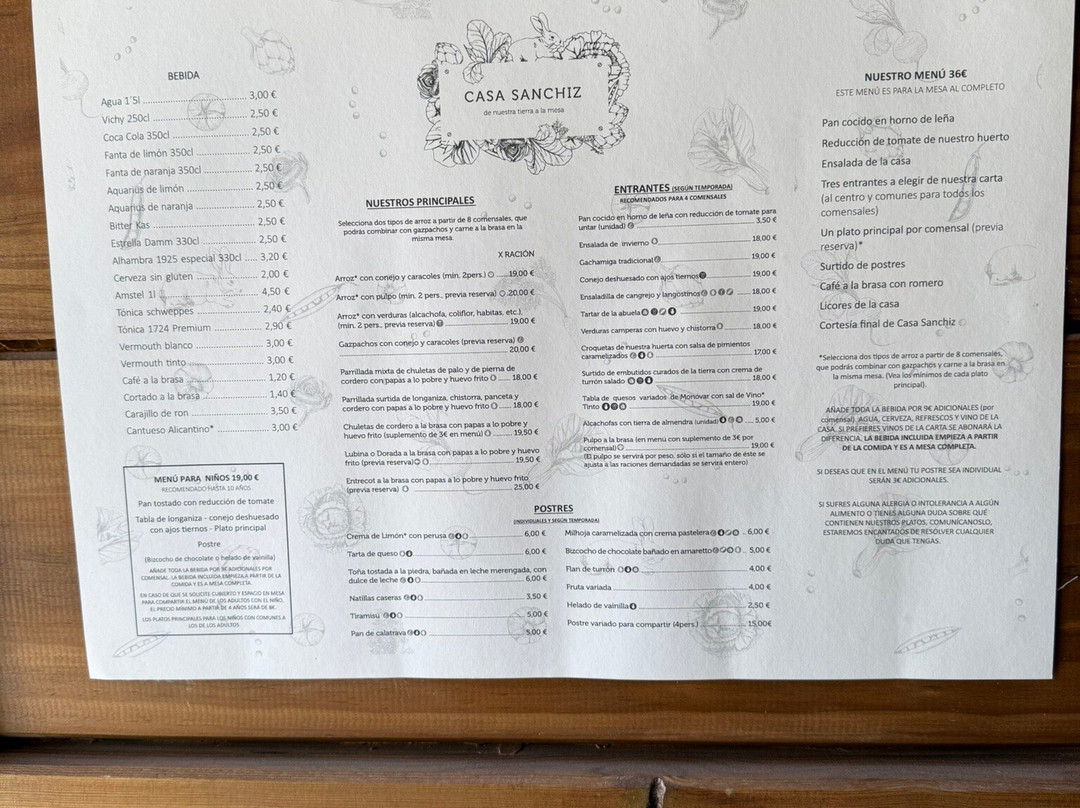 BEBIDA
Agua 1´5l ........ 3,00 €
Vichy 250cl ........ 2,50 €
Coca Cola 350cl ........ 2,50 €
Fanta de limón 350cl ........ 2,50 €
Fanta de naranja 350cl ........ 2,50 €
Aquarius de limón ........ 2,50 €
Aquarius de naranja ........ 2,50 €
Bitter Kas ........ 2,50 €
Estrella Damm 330cl ........ 2,50 €
Alhambra 1925 especial 330cl ..... 3,20 €
Cerveza sin gluten ........ 2,00 €
Amstel 1l ........ 4,50 €
Tónica schweppes ........ 2,40 €
Tónica 1724 Premium ........ 2,90 €
Vermouth blanco ........ 3,00 €
Vermouth tinto ........ 3,00 €
Café a la brasa ........ 1,20 €
Cortado a la brasa ........ 1,40 €
Carajillo de ron ........ 3,50 €
Cantueso Alicantino* ........ 3,00 €
MENÚ PARA NIÑOS 19,00 €
RECOMENDADO HASTA 10 AÑOS
Pan tostado con reducción de tomate
Tabla de longaniza - conejo deshuesado
con ajos tiernos - Plato principal
Postre
(Bizcocho de chocolate o helado de vainilla)
AÑADE TODA LA BEBIDA POR 9€ ADICIONALES POR
COMENSAL. LA BEBIDA INCLUIDA EMPIEZA A PARTIR DE LA
COMIDA Y ES A MESA COMPLETA.
EN CASO DE QUE SE SOLICITE CUBIERTO Y ESPACIO EN MESA
PARA COMPARTIR EL MENÚ DE LOS ADULTOS CON EL NIÑO,
EL PRECIO MÍNIMO A PARTIR DE 4 AÑOS SERÁ DE 8€.
LOS PLATOS PRINCIPALES PARA LOS NIÑOS SON COMUNES A
LOS DE LOS ADULTOS
CASA SANCHIZ
de nuestra tierra a la mesa
NUESTROS PRINCIPALES
Selecciona dos tipos de arroz a partir de 8 comensales, que
podrás combinar con gazpachos y carne a la brasa en la
misma mesa.
X RACIÓN
Arroz* con conejo y caracoles (min. 2pers.) ....19,00 €
Arroz* con pulpo (min. 2 pers., previa reserva) .20,00 €
Arroz* con verduras (alcachofa, coliflor, habitas, etc.),
(min. 2 pers., previa reserva) ____ 19,00 €
Gazpachos con conejo y caracoles (previa reserva)
____ 20,00 €
Parrillada mixta de chuletas de palo y de pierna de
cordero con papas a lo pobre y huevo frito ....18,00 €
Parrillada surtida de longaniza, chistorra, panceta y
cordero con papas a lo pobre y huevo frito ....18,00 €
Chuletas de cordero a la brasa con papas a lo pobre y
huevo frito (suplemento de 3€ en menú) ____ 19,50 €
Lubina o Dorada a la brasa con papas a lo pobre y huevo
frito (previa reserva) ____ 19,50 €
Entrecot a la brasa con papas a lo pobre y huevo frito
(previa reserva) ____ 25,00 €
ENTRANTES (SEGÚN TEMPORADA)
RECOMENDADOS PARA 4 COMENSALES
Pan cocido en horno de leña con reducción de tomate para
untar (unidad) ____ 3,50 €
Ensalada de invierno ____ 18,00 €
Gachamiga tradicional ____ 19,00 €
Conejo deshuesado con ajos tiernos ____ 19,00 €
Ensaladilla de cangrejo y langostinos ____ 18,00 €
Tartar de la abuela ____ 19,00 €
Verduras camperas con huevo y chistorra ____ 18,00 €
Croquetas de nuestra huerta con salsa de pimientos
caramelizados ____ 17,00 €
Surtido de embutidos curados de la tierra con crema de
turrón salado ____ 18,00 €
Tabla de quesos variados de Monóvar con sal de Vino*
Tinto ____ 19,00 €
Alcachofas con tierra de almendra (unidad) ____ 5,00 €
Pulpo a la brasa (en menú con suplemento de 3€ por
comensal) ____ 19,00 €
(El pulpo se servirá por peso, sólo si el tamaño de éste se
ajusta a las raciones demandadas se servirá entero)
POSTRES
(INDIVIDUALES Y SEGÚN TEMPORADA)
Crema de Limón* con perusa ____ 6,00 €
Tarta de queso ____ 6,00 €
Toña tostada a la piedra, bañada en leche merengada, con
dulce de leche ____ 6,00 €
Natillas caseras ____ 3,50 €
Tiramisú ____ 5,00 €
Pan de calatrava ____ 5,00 €
Milhoja caramelizada con crema pastelera .. 6,00 €
Bizcocho de chocolate bañado en amaretto .. 5,00 €
Flan de turrón ____ 4,00 €
Fruta variada ____ 4,00 €
Helado de vainilla ____ 2,50 €
Postre variado para compartir (4pers.) ____ 15,00€
NUESTRO MENÚ 36€
ESTE MENÚ ES PARA LA MESA AL COMPLETO
Pan cocido en horno de leña
Reducción de tomate de nuestro huerto
Ensalada de la casa
Tres entrantes a elegir de nuestra carta
(al centro y comunes para todos los
comensales)
Un plato principal por comensal (previa
reserva)*
Surtido de postres
Café a la brasa con romero
Licores de la casa
Cortesía final de Casa Sanchiz
*Selecciona dos tipos de arroz a partir de 8 comensales,
que podrás combinar con gazpachos y carne a la brasa en
la misma mesa. (Vea los mínimos de cada plato
principal).
AÑADE TODA LA BEBIDA POR 9€ ADICIONALES (por
comensal). AGUA, CERVEZA, REFRESCOS Y VINO DE LA
CASA. SI PREFIERES VINOS DE LA CARTA SE ABONARÁ LA
DIFERENCIA. LA BEBIDA INCLUIDA EMPIEZA A PARTIR
DE LA COMIDA Y ES A MESA COMPLETA.
SI DESEAS QUE EN EL MENÚ TU POSTRE SEA INDIVIDUAL
SERÁN 3€ ADICIONALES.
SI SUFRES ALGUNA ALERGIA O INTOLERANCIA A ALGÚN
ALIMENTO O TIENES ALGUNA DUDA SOBRE QUÉ
CONTIENEN NUESTROS PLATOS, COMUNÍCANOSLO,
ESTAREMOS ENCANTADOS DE RESOLVER CUALQUIER
DUDA QUE TENGAS.